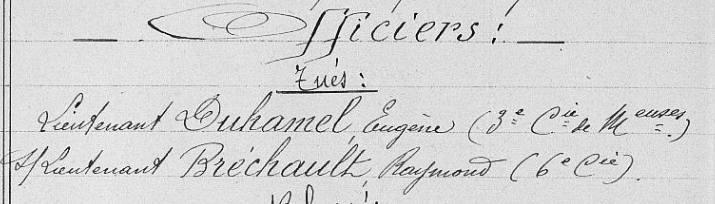 — Officiers : —
Tués :
Lieutenant Duhamel, Eugène (3e Cie de Meuses.)
S/Lieutenant Bréchault, Raymond (6e Cie).